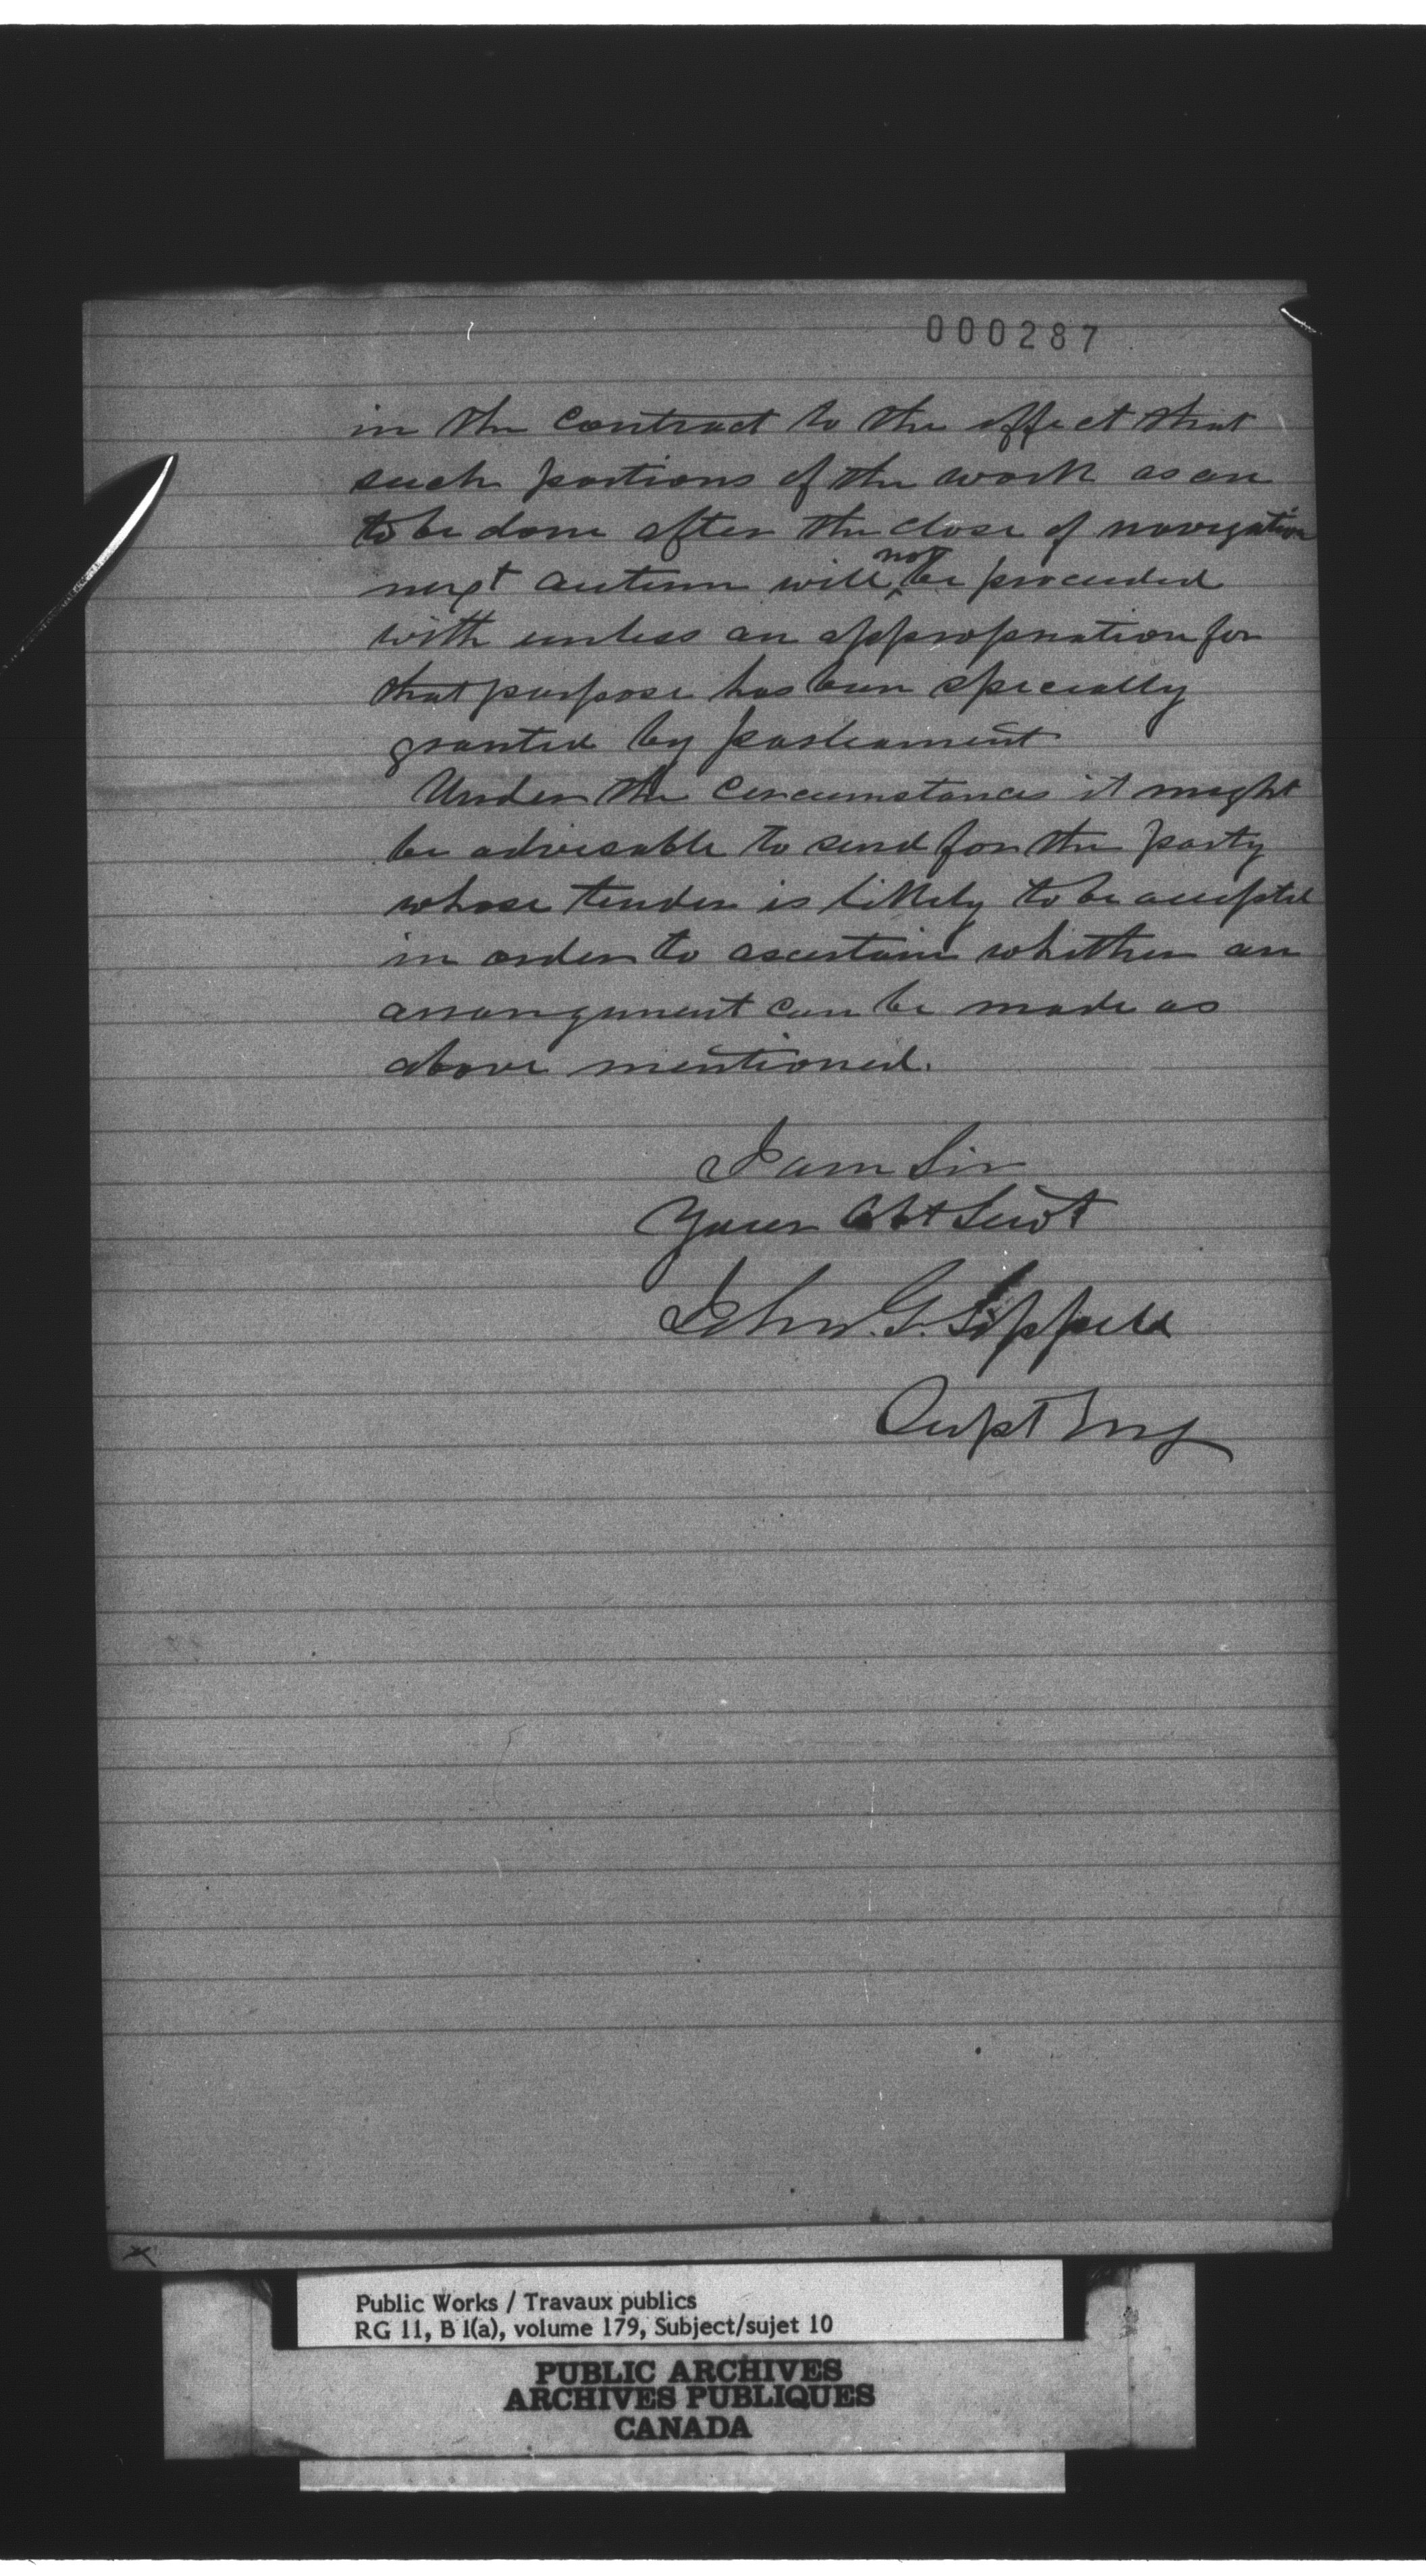 000287
in the contract to the effect that
such portions of the work as are
to be done after the close of navigation
next autumn will not be proceeded
with unless an appropriation for
that purpose has been specially
granted by parliament
Under the circumstances it might
be advisable to send for the party
whose tender is likely to be accepted
in order to ascertain whether an
arrangement can be made as
above mentioned.
I am Sir
Your Obt Servt
John. G. Sippell
Supt Eng
Public Works / Travaux publics
RG 11, B 1(a), volume 179, Subject/sujet 10
PUBLIC ARCHIVES
ARCHIVES PUBLIQUES
CANADA